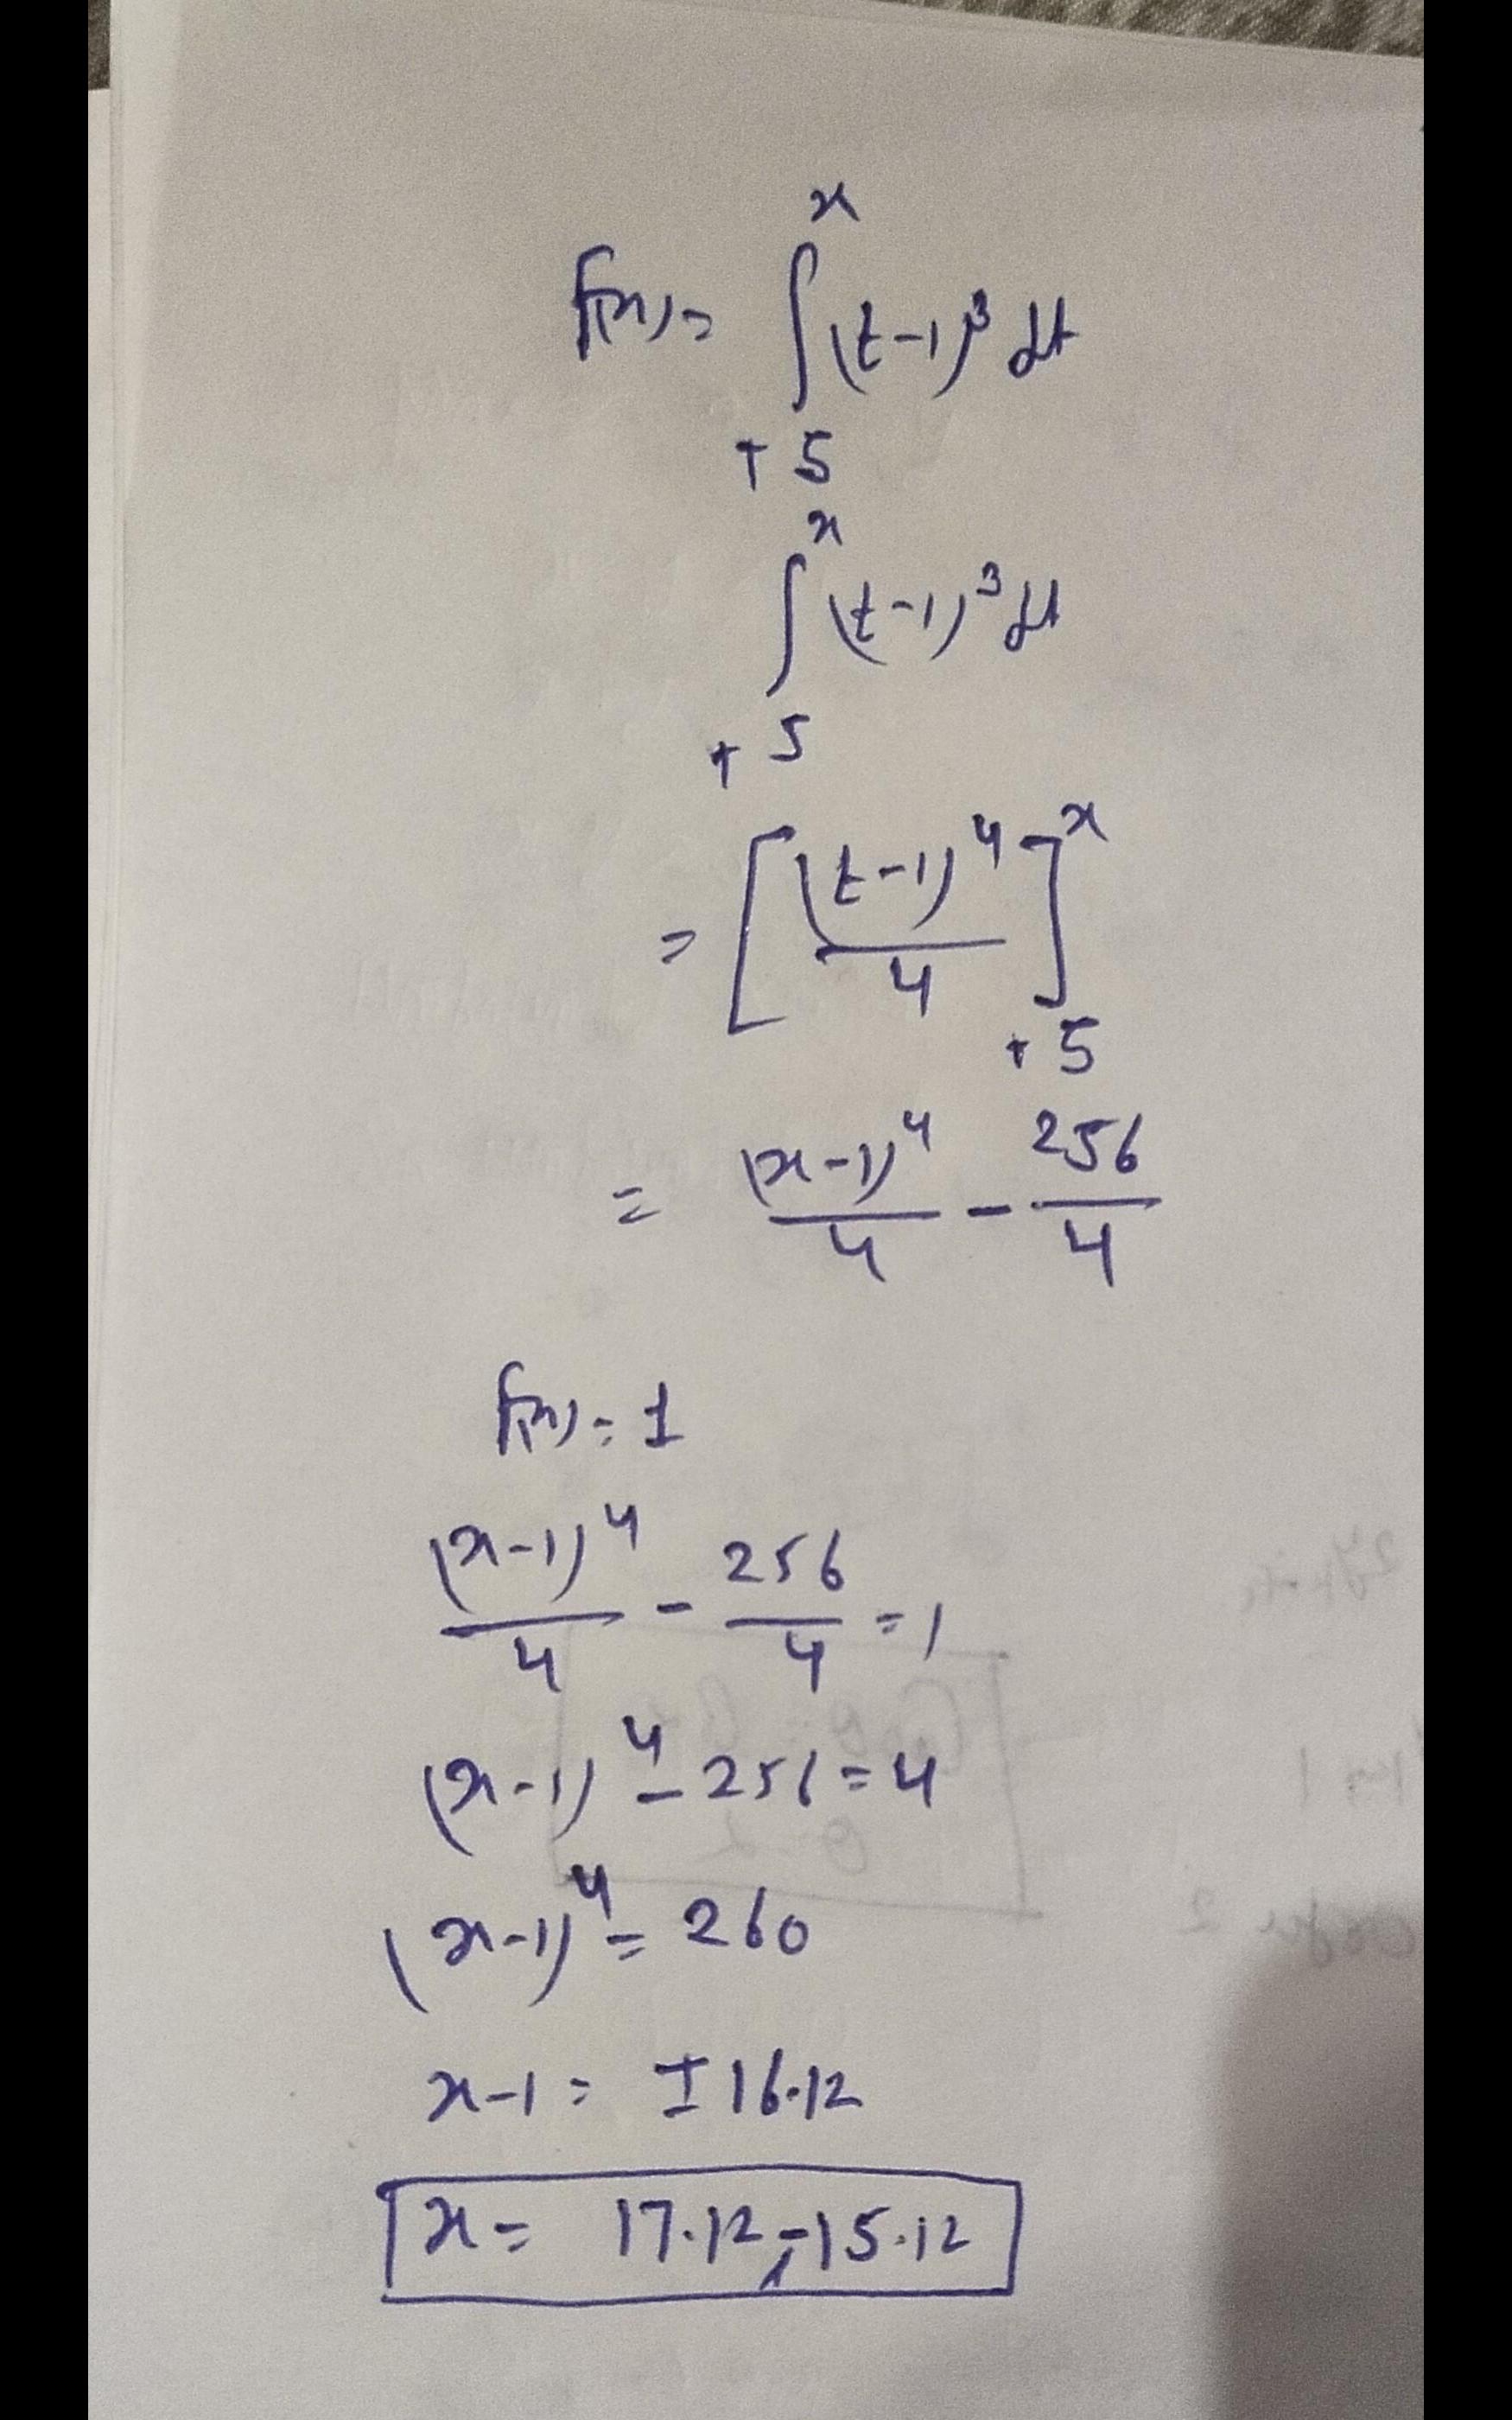 f(x) = ∫ (t-1)³ dt
x
+5
x
∫ (t-1)³ dt
+5
= [ (t-1)⁴ / 4 ]
x
+5
= (x-1)⁴ / 4 - 256 / 4
f(x) = 1
(x-1)⁴ / 4 - 256 / 4 = 1
(x-1)⁴ - 256 = 4
(x-1)⁴ = 260
x-1 = ±16.12
x = 17.12, -15.12